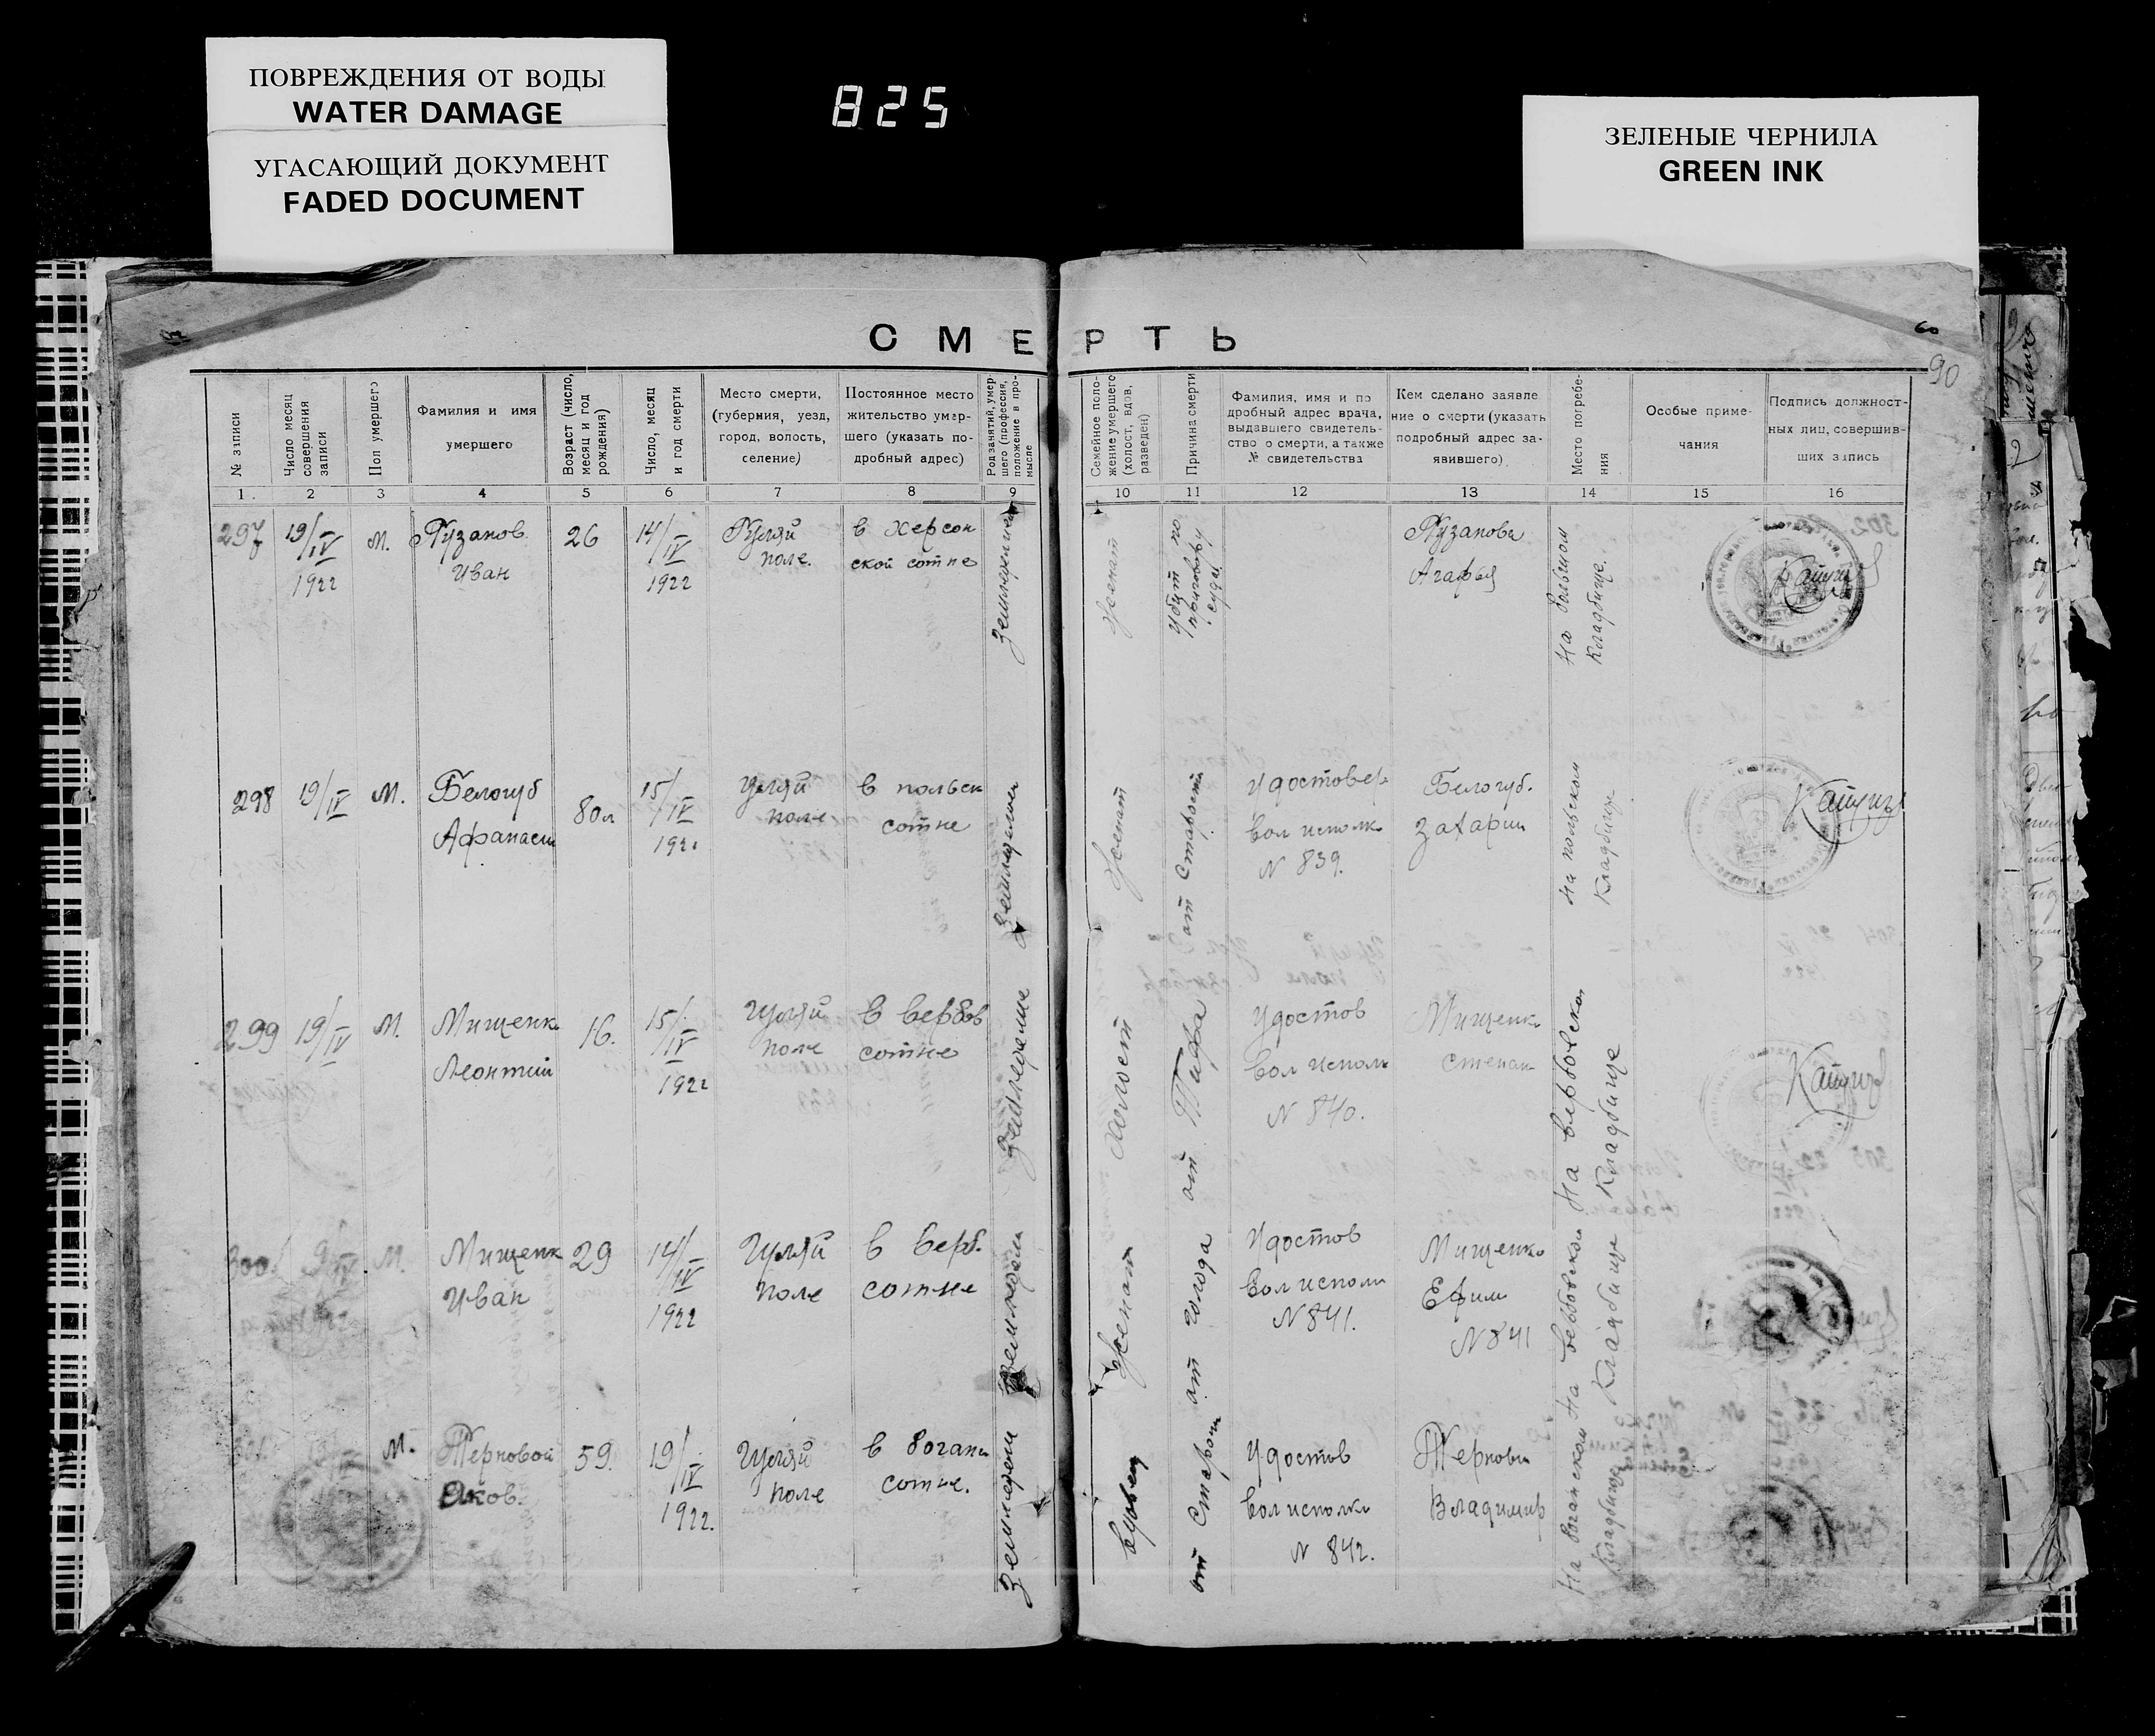 ПОВРЕЖДЕНИЯ ОТ ВОДЫ
WATER DAMAGE
УГАСАЮЩИЙ ДОКУМЕНТ
FADED DOCUMENT
825
ЗЕЛЕНЫЕ ЧЕРНИЛА
GREEN INK
СМЕРТЬ
90
№ записи
Число месяц
совершения
записи
Пол умершего
Фамилия и имя
умершего
Возраст (число,
месяц и год
рождения)
Число, месяц
и год смерти
Место смерти,
(губерния, уезд,
город, волость,
селение)
Постоянное место
жительство умер-
шего (указать по-
дробный адрес)
Род занятий, умер-
шего (профессия,
положение в про-
мысле
Семейное поло-
жение умершего
(холост, вдов,
разведен)
Причина смерти
Фамилия, имя и по
дробный адрес врача,
выдавшего свидетель-
ство о смерти, а также
№ свидетельства
Кем сделано заявле
ние о смерти (указать
подробный адрес за-
явившего)
Место погребе-
ния
Особые приме-
чания
Подпись должност-
ных лиц, совершив-
ших запись
1. 2 3 4 5 6 7 8 9 10 11 12 13 14 15 16
297
19/IV
1922
м.
Рузанов
Иван
26
14/IV
1922
Гуляй
поле.
в Херсон
ской сотне
женат
Убит по
приговору
суда.
Рузанова
Агафья
На большом
кладбище.
298
19/IV
м.
Белогуб
Афанасий
80л
15/IV
192
Гуляй
поле
в польск
сотне
женат
от старости
Удостовер
вол исполк
N 839.
Белогуб.
Захарий
На польском
кладбище
299
19/IV
м.
Мищенко
Леонтий
16.
15/IV
1922
Гуляй
поле
в вербов
сотне
холост
от Тифа
Удостов
вол исполк
N 840.
Мищенко
Степан
На вербовском
кладбище
300
9/IV
м.
Мищенк
Иван
29
14/IV
1922
Гуляй
поле
в верб.
сотне
женат
от голода
Удостов
вол исполк
N 841.
Мищенко
Ефим
N 841
На вербовском
кладбище
м.
Терновой
Яков.
59.
19/IV
1922.
Гуляй
поле
в богани
сотне.
вдовец
от старости
Удостов
вол исполк
N 842.
Терновы
Владимир
На боганском
кладбище